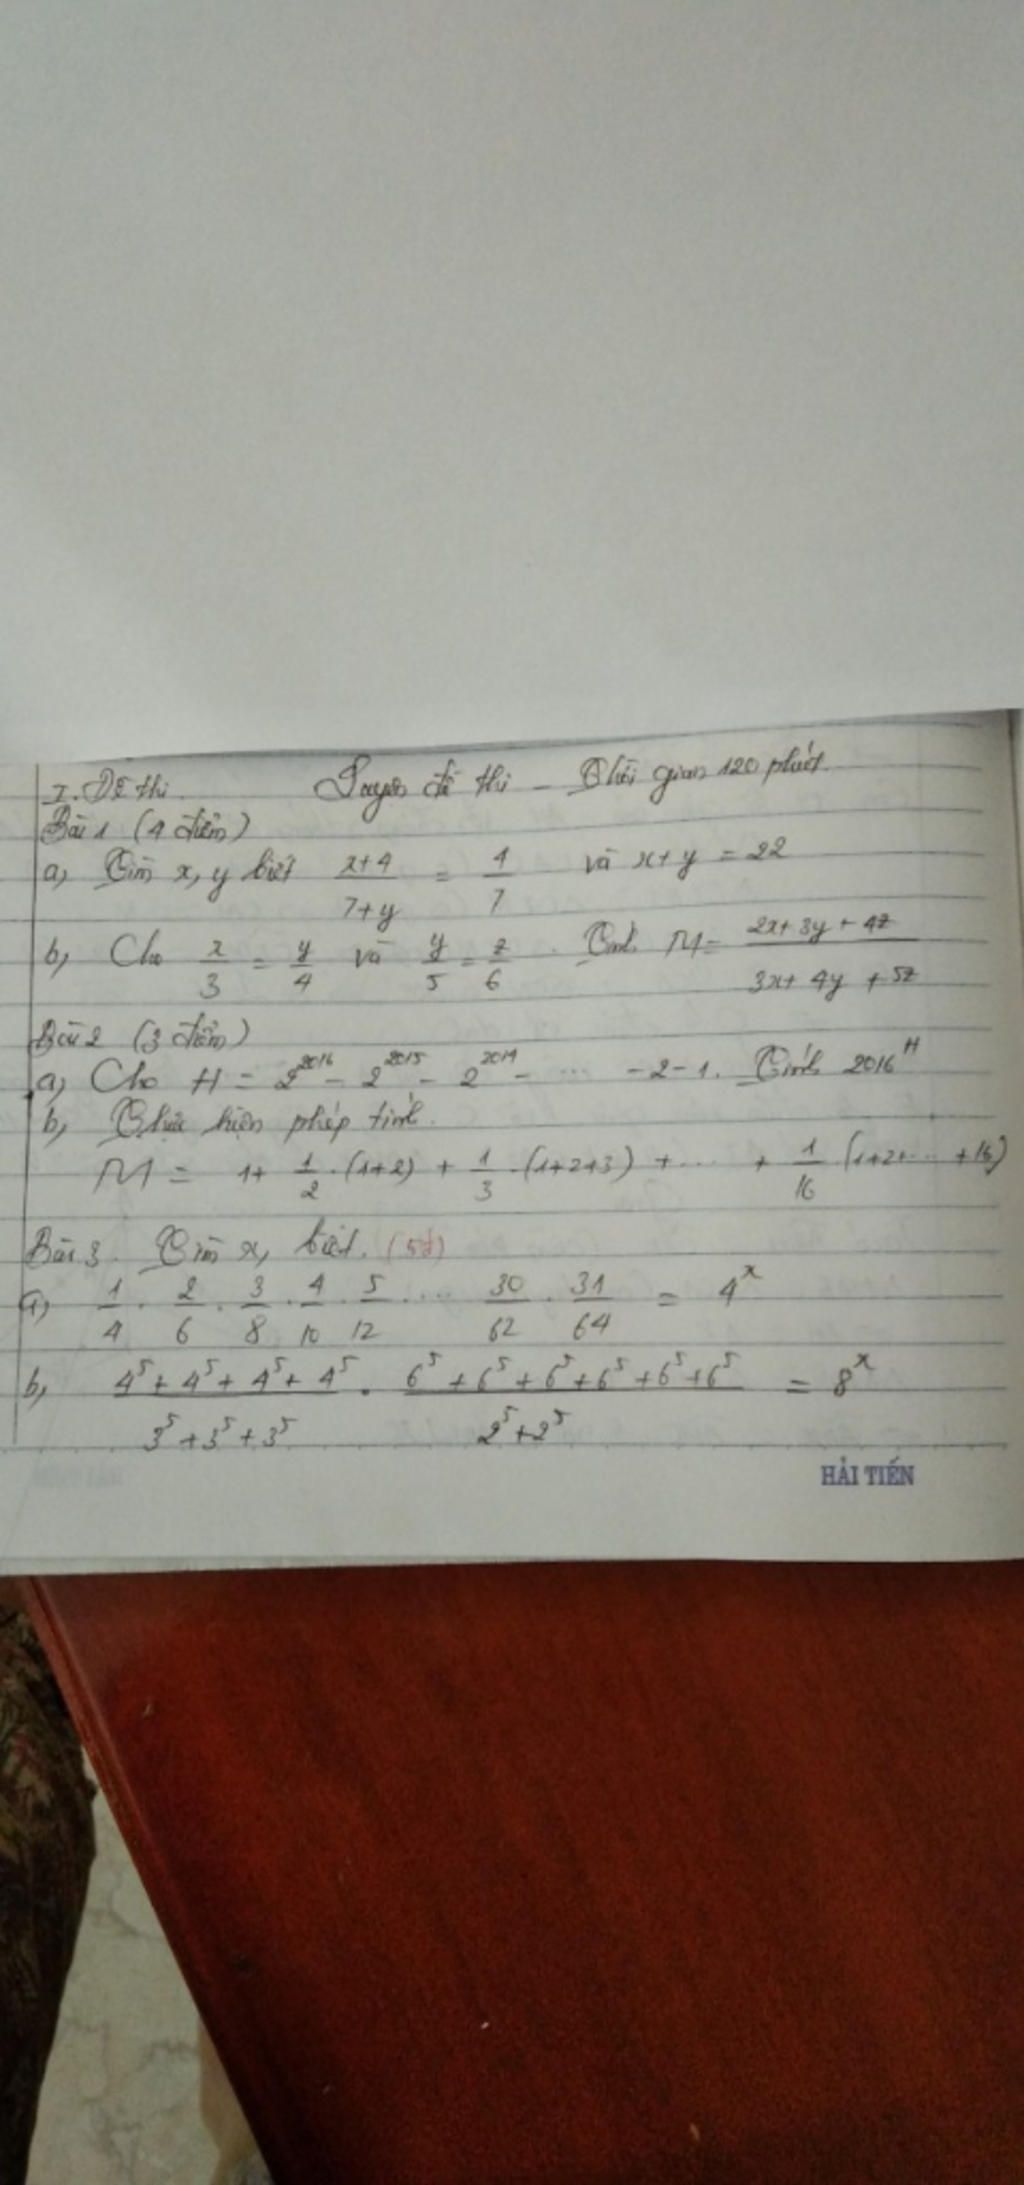 I. Đề thi. Luyện đề thi - Thời gian 120 phút.
Bài 1 (4 điểm)
a) Tìm x, y biết \frac{x+4}{7+y} = \frac{4}{7} và x+y = 22
b) Cho \frac{x}{3} = \frac{y}{4} và \frac{y}{5} = \frac{z}{6}. Tính M = \frac{2x+3y+4z}{3x+4y+5z}
Bài 2 (3 điểm)
a) Cho H = 2^{2016} - 2^{2015} - 2^{2014} - ... - 2 - 1. Tính 2016^H
b) Thực hiện phép tính.
M = 1 + \frac{1}{2}.(1+2) + \frac{1}{3}.(1+2+3) + ... + \frac{1}{16}.(1+2+...+16)
Bài 3. Tìm x, biết. (5đ)
a) \frac{1}{4}.\frac{2}{6}.\frac{3}{8}.\frac{4}{10}.\frac{5}{12}....\frac{30}{62}.\frac{31}{64} = 4^x
b) \frac{4^5+4^5+4^5+4^5}{3^5+3^5+3^5}.\frac{6^5+6^5+6^5+6^5+6^5+6^5}{2^5+2^5} = 8^x
HẢI TIẾN